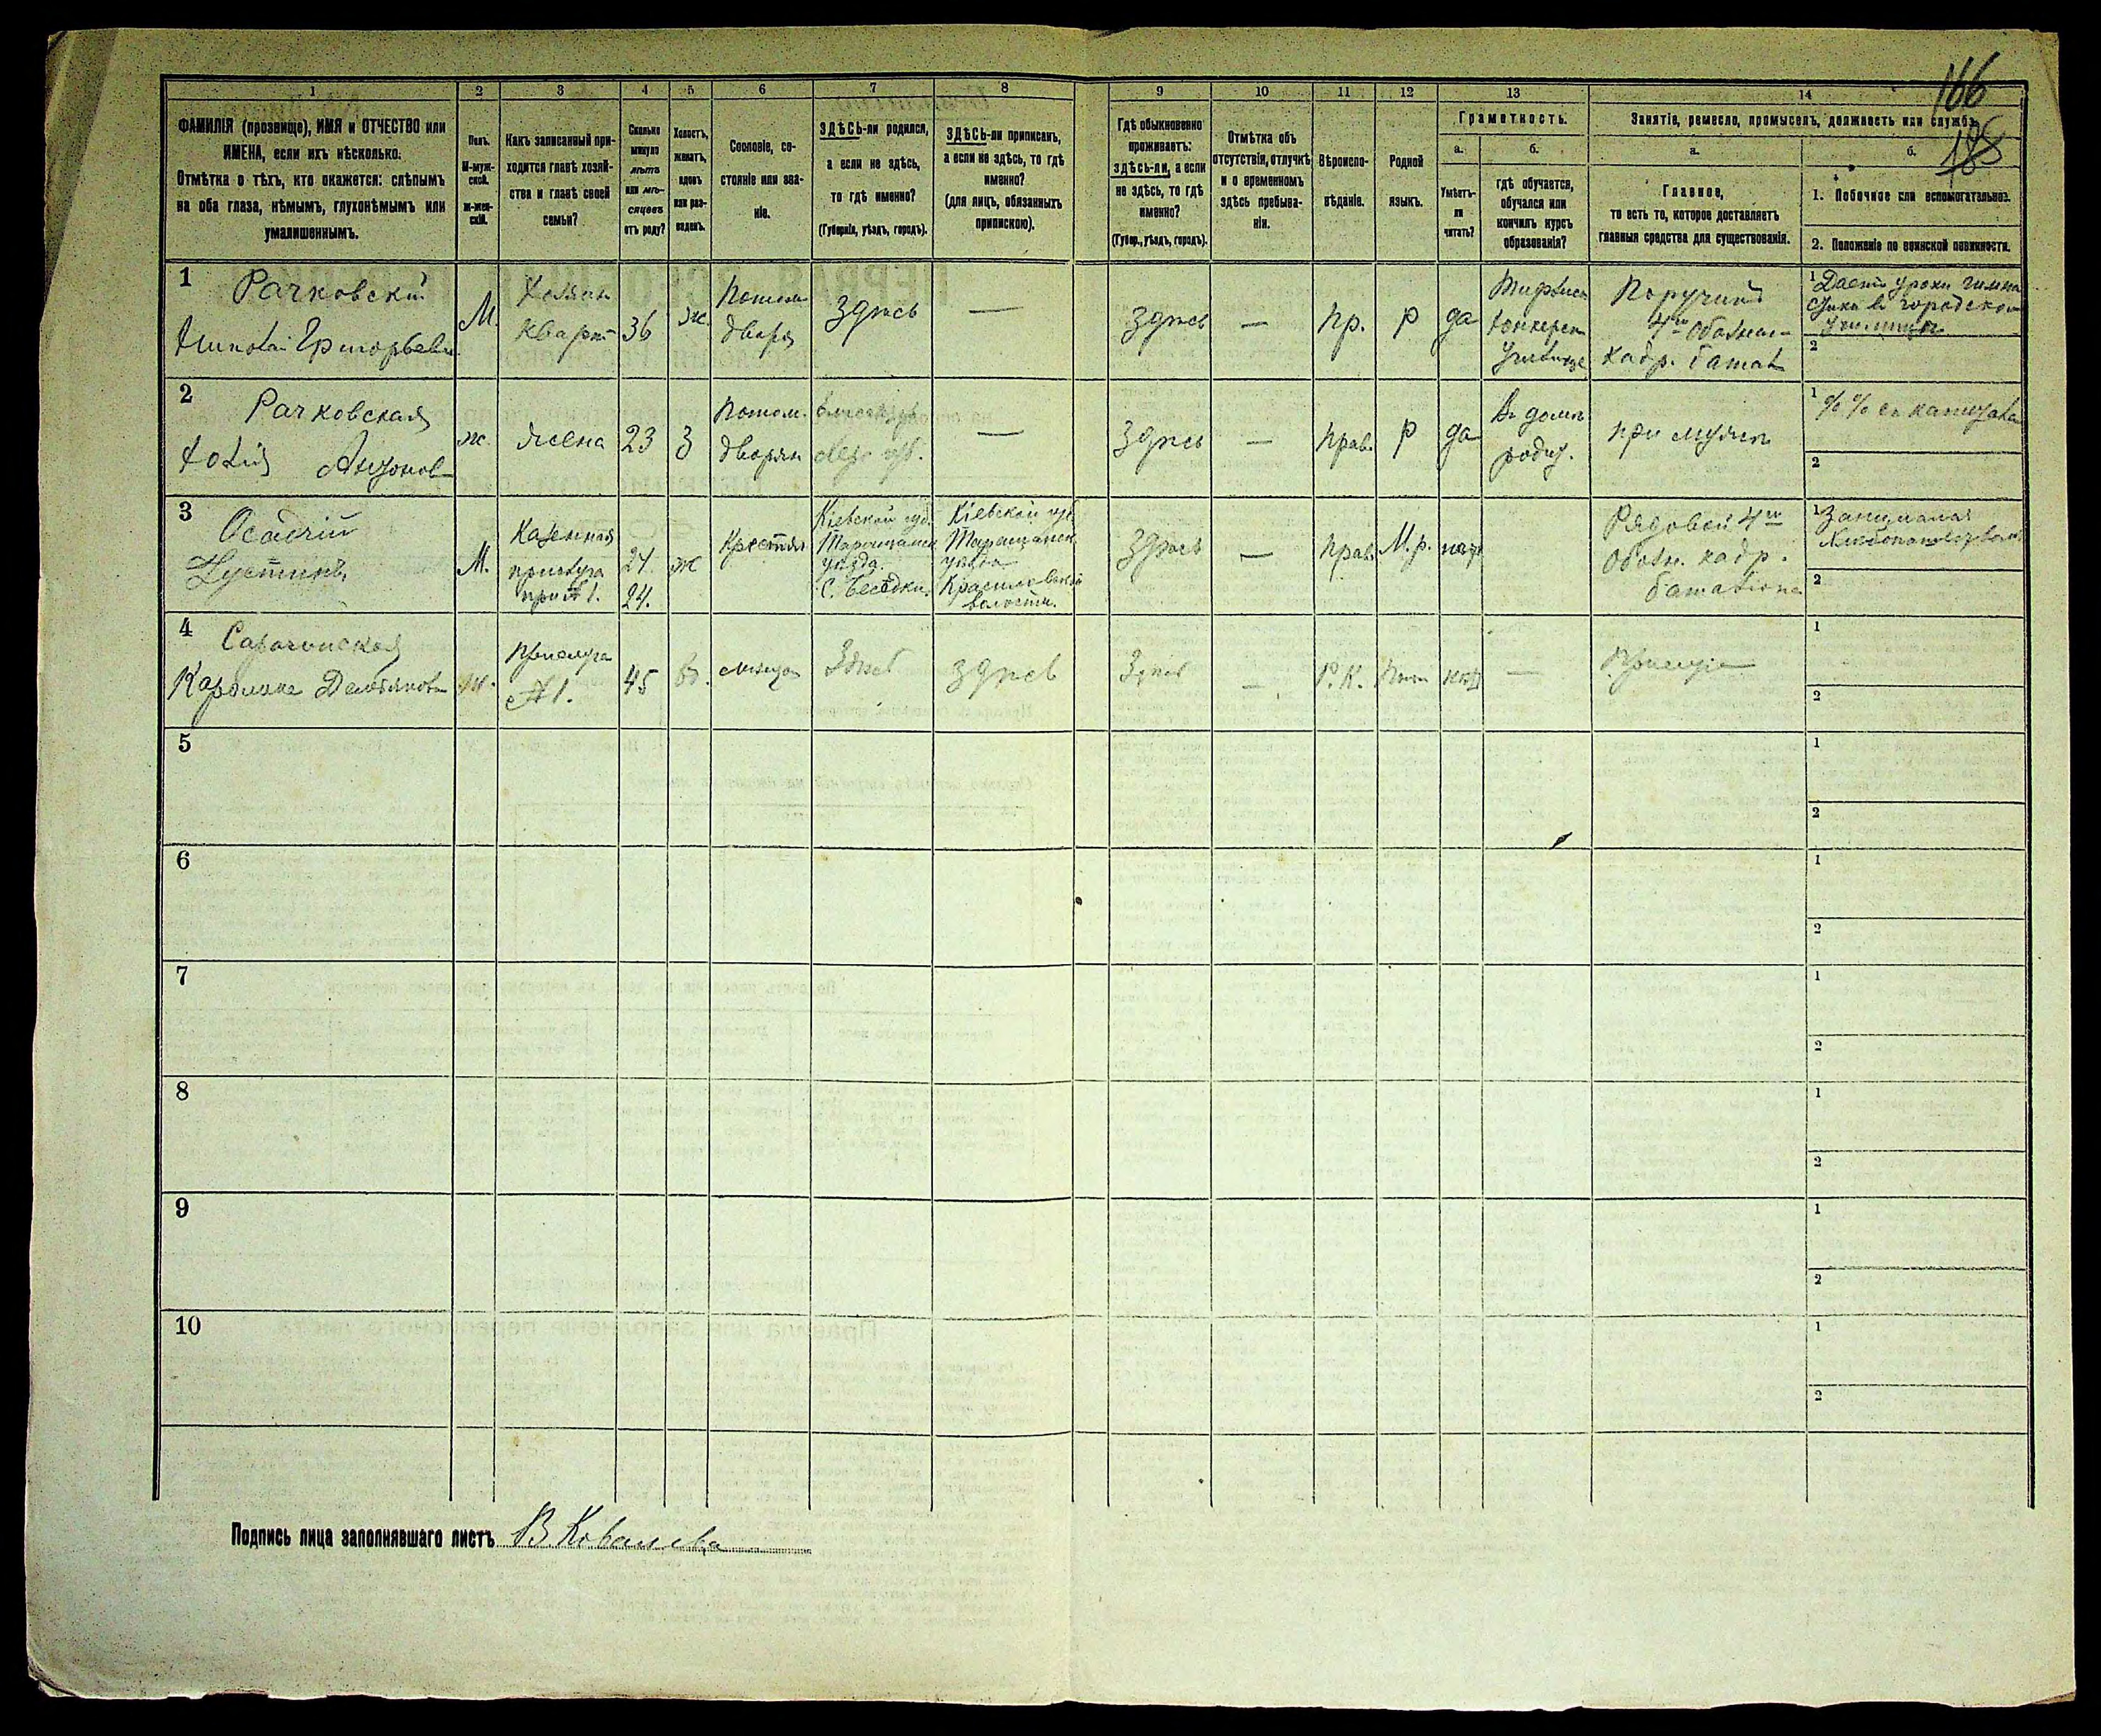 166
188
1
2
3
4
5
6
7
8
9
10
11
12
13
14
ФАМИЛІЯ (прозвище), ИМЯ и ОТЧЕСТВО или
ИМЕНА, если ихъ нѣсколько.
Отмѣтка о тѣхъ, кто окажется: слѣпымъ
на оба глаза, нѣмымъ, глухонѣмымъ или
умалишеннымъ.
Полъ.
М-муж-
ской.
ж-жен-
скій.
Какъ записанный при-
ходится главѣ хозяй-
ства и главѣ своей
семьи?
Сколько
минуло
лѣтъ
или мѣ-
сяцевъ
отъ роду?
Холостъ,
женатъ,
вдовъ
или раз-
веденъ.
Сословіе, со-
стояніе или зва-
ніе.
ЗДѢСЬ-ли родился,
а если не здѣсь,
то гдѣ именно?
(Губернія, уѣздъ, городъ).
ЗДѢСЬ-ли приписанъ,
а если не здѣсь, то гдѣ
именно?
(для лицъ, обязанныхъ
припискою).
Гдѣ обыкновенно
проживаетъ:
здѣсь-ли, а если
не здѣсь, то гдѣ
именно?
(Губер., уѣздъ, городъ).
Отмѣтка объ
отсутствіи, отлучкѣ
и о временномъ
здѣсь пребыва-
ніи.
Вѣроиспо-
вѣданіе.
Родной
языкъ.
Грамотность.
а.
Умѣетъ-
ли
читать?
б.
гдѣ обучается,
обучался или
кончилъ курсъ
образованія?
Занятіе, ремесло, промыселъ, должность или служба.
а.
Главное,
то есть то, которое доставляетъ
главныя средства для существованія.
б.
1. Побочное или вспомогательное.
2. Положеніе по воинской повинности.
1
Рачковскій
Григорьев
М.
Хозяин
кварт
36
ж.
Потом
дворя
здѣсь
—
здѣсь
—
пр.
р
да
юнкерск
училище
Поручикъ
4го обозн-
кадр. батал
1 Даетъ уроки гимна
стики въ городском
училищѣ
2
2
Рачковская
Антонов
ж.
жена
23
З
Потом.
дворян
губ.
—
здѣсь
—
прав.
р
да
Въ домѣ
родит.
при мужѣ
1 %% съ капитала
2
3
Осадчій
Іустинъ
М.
Казенная
прислуга
при № 1.
24.
24.
ж
Крестьян
Кіевской губ.
Таращанск
уѣзда.
С. Бесѣдки.
Кіевской губ
Таращанск
уѣзда
волости.
здѣсь
—
прав.
М. р.
нѣтъ
Рядовой 4го
обозн. кадр.
баталіона
1 Занимался
хлѣбопашествомъ
2
4
Каролина
ж.
прислуга
№ 1.
45
в.
мѣщан
Здѣсь
здѣсь
Здѣсь
—
Р. К.
нѣтъ
—
Прислуга
1
2
5
1
2
6
1
2
7
1
2
8
1
2
9
1
2
10
1
2
Подпись лица заполнявшаго листъ В. Ковалева